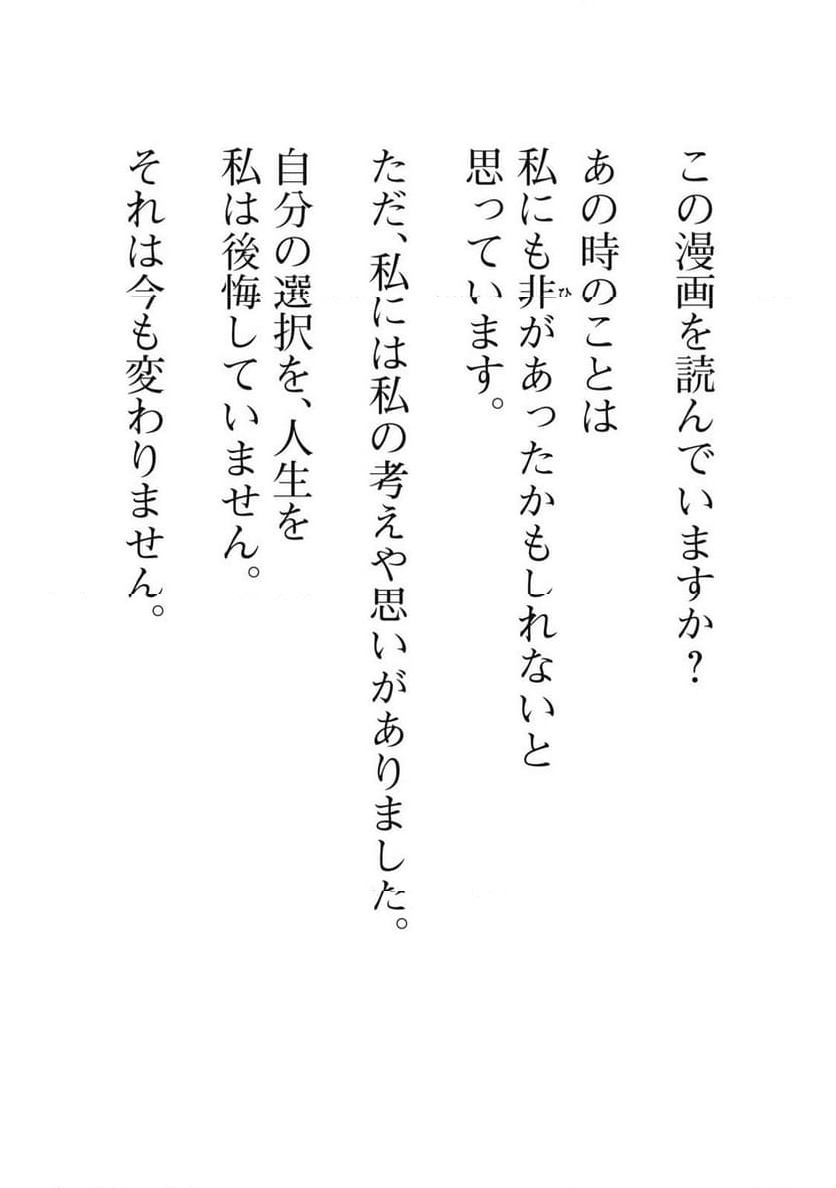 この漫画を読んでいますか？
あの時のことは
私にも非があったかもしれないと
ひ
思っています。
ただ、私には私の考えや思いがありました。
自分の選択を、人生を
私は後悔していません。
それは今も変わりません。